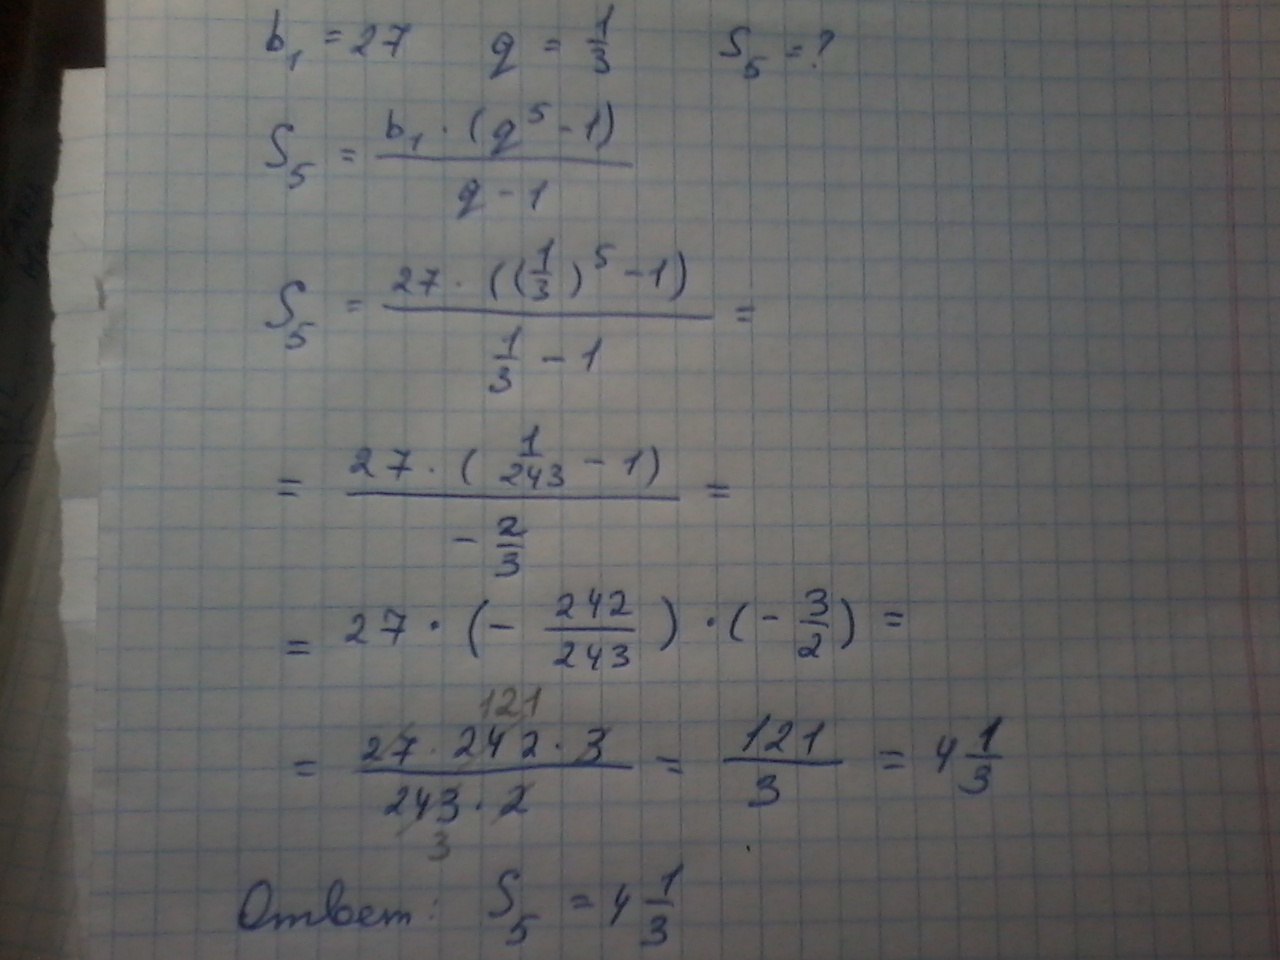 b₁ = 27 q = 1/3 S₅ = ?
S₅ = (b₁ · (q⁵ - 1))/(q - 1)
S₅ = (27 · ((1/3)⁵ - 1))/(1/3 - 1) =
= (27 · (1/243 - 1))/(- 2/3) =
= 27 · (- 242/243) · (- 3/2) =
121
= (27 · 242 · 3)/(243 · 2) = 121/3 = 4 1/3
3
Ответ: S₅ = 4 1/3